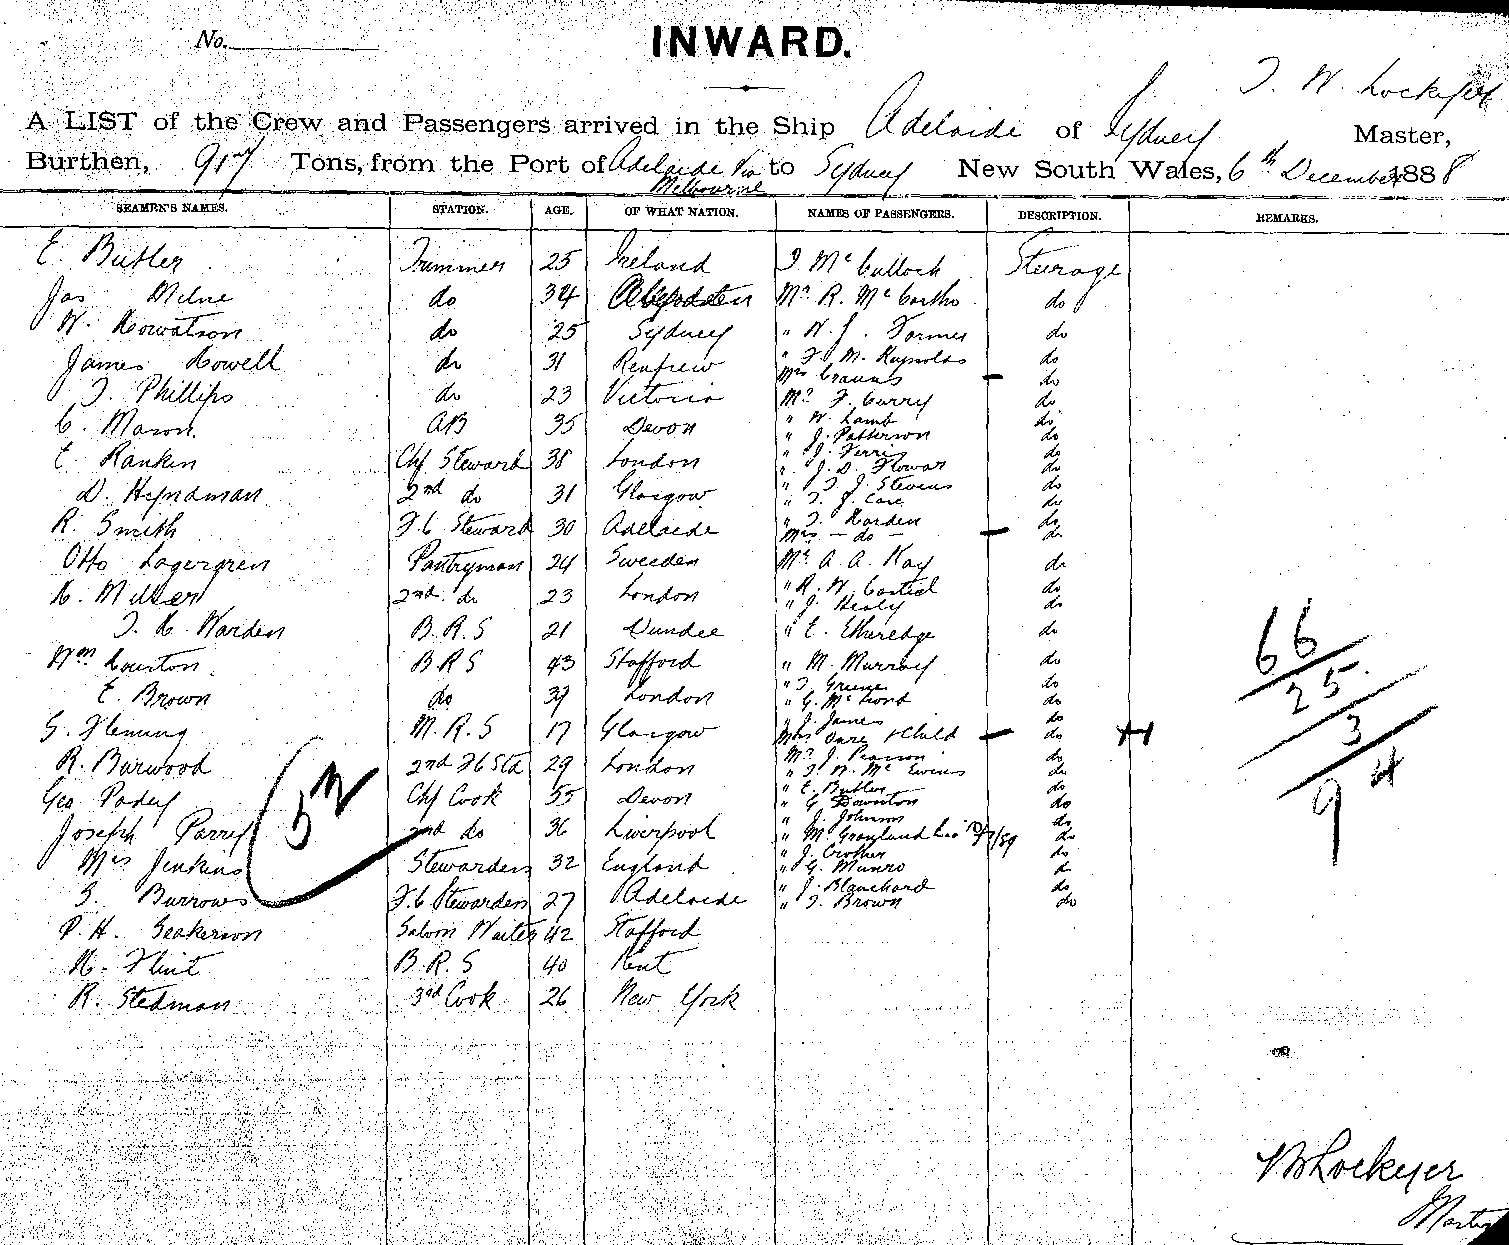 No.
INWARD.
T. W. Lockyer
A LIST of the Crew and Passengers arrived in the Ship Adelaide of Sydney Master,
Burthen, 917 Tons, from the Port of Adelaide Via Melbourne to Sydney New South Wales, 6th December 1888
SEAMEN'S NAMES. STATION. AGE. OF WHAT NATION. NAMES OF PASSENGERS. DESCRIPTION. REMARKS.
E. Butler Trimmer 25 Ireland McCulloch Steerage
Jas Milne do 34 Mr. R. do
W. Howatson do 25 Sydney " W. J. Farmer do
James Howell do 31 Renfrew " F. M. Reynolds do
Mrs do
T. Phillips do 23 Victoria Mr. F. Curry do
C. Mason. AB 35 Devon " W. Lamb do
" J. Patterson do
E. Rankin Chf Steward 38 London " J. Ferris do
" J. D. do
D. Hyndman 2nd do 31 Glasgow " T. J. Stevens do
" T. J. Case do
R. Smith F.C Steward 30 Adelaide " T. Harden do
Mrs - do - do
Otto Lagergren Pantryman 24 Sweeden Mr. A. A. Kay do
H. Miller 2nd. do 23 London " R. W. do
" J. Healy do
T. H. Warden B.R.S 21 Dundee " E. Etheredge do
Wm Lourton B.R.S 43 Stafford " M. Murray do
E. Brown do 39 London " T. Greene do
" G. do
G. Fleming M.R.S 17 Glasgow " J. James do
Mrs + Child do
R. Burwood 2nd F C Std 29 London Mr. J. Pearson do
" McEwins do
Geo Padey Chf Cook 55 Devon " E. Butler do
" G. Downton do
Joseph Parry 2nd do 36 Liverpool " J. Johnson do
" M. Grayland do
Mrs Jenkins Stewardess 32 England " J. Crother do
" G. Munro do
S. Burrows F.C Stewardess 27 Adelaide " J. Blanchard do
" T. Brown do
P. H. Seakerson Saloon Waiter 42 Stafford
H. Flint B.R.S 40 Kent
R. Stedman 3rd Cook 26 New York
52
66
25
3
4
9
Lockyer
Master